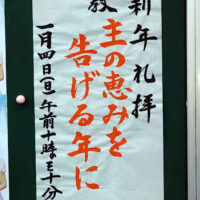 新年礼拝
教
主の恵みを
告げる年に
一月四日(日)午前十時三十分